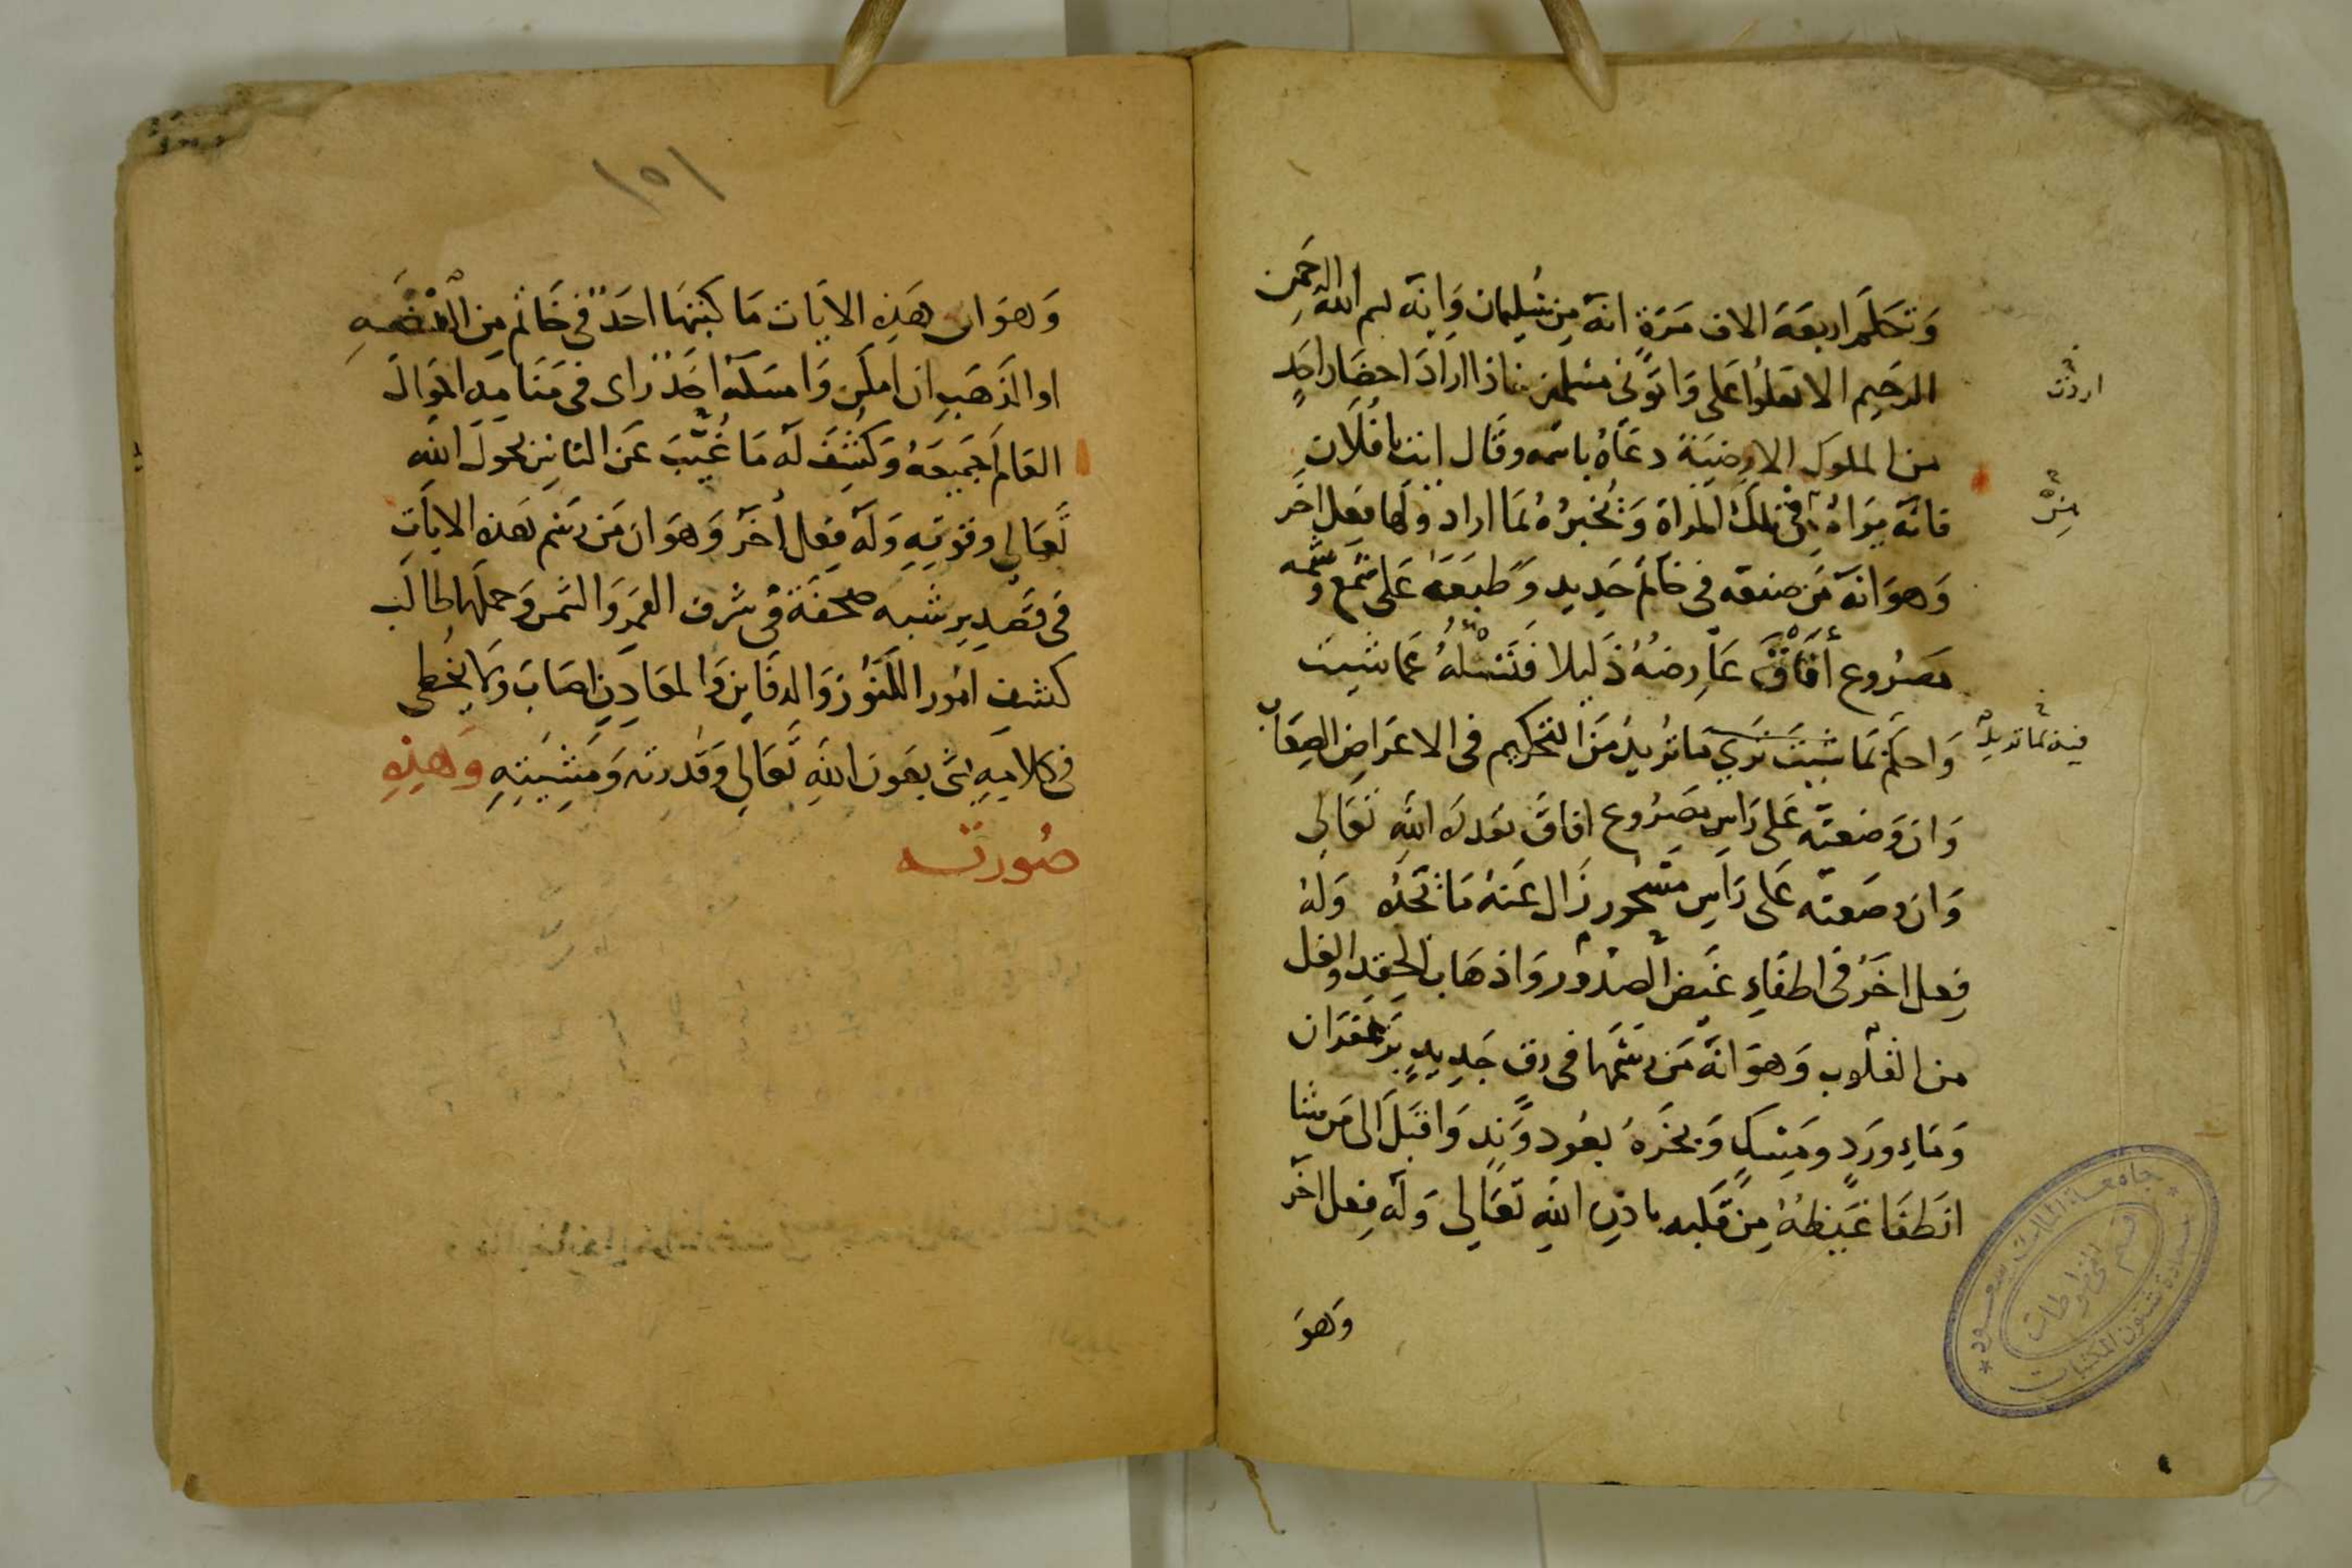 وَتُكَلِّمُ اربعَةَ الاف مَرّة انهُ مِن سُليمان وَانّه بسم اللهِ الرحمن
الرحيم الا تعلوا عَلى وَاتوني مسلمين فاذا ارادَ احضَار احدٍ
من الملوك الارضيَة دعَاهُ باسمه وقَال ايت يا فُلان
فانّه يَراهُ في تلك المراة وَيُخبرهُ بمَا اراد ولها فعل اخر
وَهوَ انهُ مَن صنعه في خاتم حَديد وَطبَعَهُ عَلى شمع وَشمه
مَصرُوع أفَاقَ عَارضهُ ذَليلا فَتسْئلهُ عما شيت
وَاحكم بمَا شيت تري مَا تُريدُ مَن التحكيم في الاعرَاض الصِعَاب
وَان وَضعته عَلى رَاس مصرُوع افاق بقدرة الله تعَالي
وَان وضعته عَلى رَاس مَسْحور زال عَنهُ مَا تجدُه وَلهُ
فِعل اخَر في اطفاءِ غيض الصدُور وَاذهَاب الحِقد والغل
من القلوب وَهوَ انهُ مَن رسَمها في رق جَديدٍ بزَعفرَان
وَمَاءِ وردٍ ومَسكٍ وَبخرَهُ بعُود وَندٍ وَاقبَل الى مَن شا
انطفا غَيظهُ مِن قَلبه باذنِ اللهِ تَعَالي وَلهُ فِعل اخر
وَهوَ
اردت
فيه بما تريد
جامعة الملك سعود
عمادة شئون المكتبات
قسم المخطوطات
١٥١
وَهوَ ان هَذهِ الايَات مَا كَتبَهَا احَدٌ في خَاتم مِن الفضهِ
او الذَهَبِ ان امكن وَامسَكهُ احَدٌ راى في مَنَامِه احوَال
العَالم جَميعهُ وَكُشِفَ لهُ مَا غُيّبَ عَن الناس بحَول اللهِ
تَعَالي وقوتِهِ وَلهُ فِعل أخر وَهوَ ان مَن رَسَم هَذه الايَاتِ
في قصدير شبه صحفَة في شرف القمر وَالشمس وَحملها طالب
كشف امُور الكنُوز وَالدفاين وَالمعَادِن اصَابَ ومَا يُخطى
في كلامِهِ شي بعَون اللهِ تَعَالي وَقدرته وَمَشِيتِهِ وَهذِهِ
صُورته